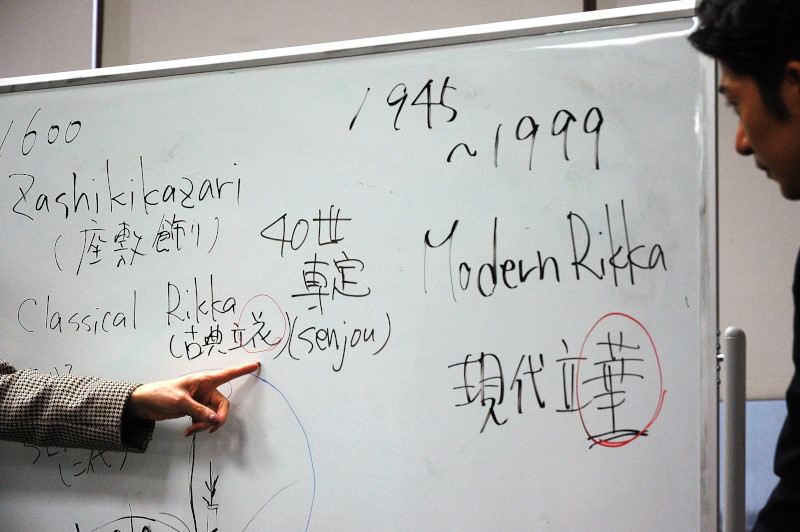 1600
Zashikikazari
(座敷飾り)
Classical Rikka
(古典立花)
40世
専定
(senjou)
1945
~1999
Modern Rikka
現代立華